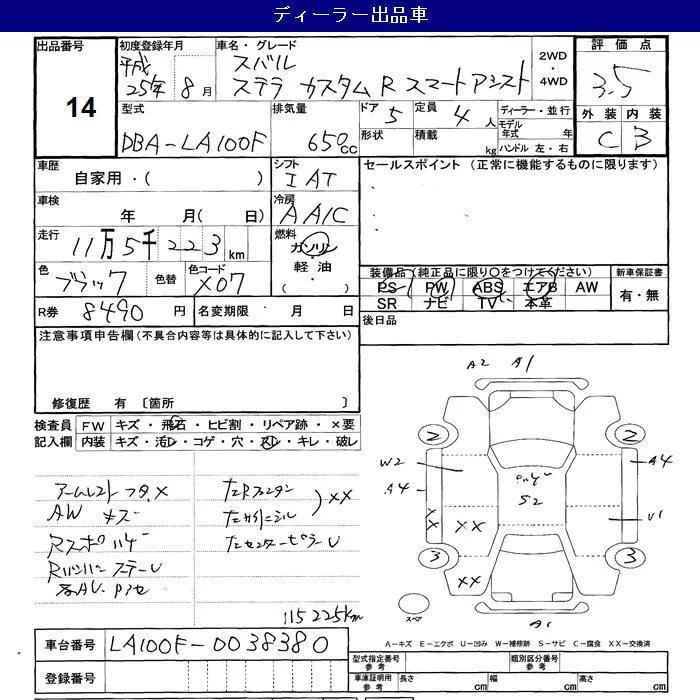 ディーラー出品車
出品番号 初度登録年月 車名・グレード 2WD ・ 4WD 評価点
14
平成 25年 8月
スバル
ステラ カスタムR スマートアシスト
3.5
型式 排気量 ドア 5 定員 4人 ディーラー・並行
DBA-LA100F 650cc 形状 積載 kg
モデル年式 年
ハンドル 左・右
外装 内装
C B
車歴 自家用・( ) シフト IAT セールスポイント (正常に機能するものに限ります)
車検 年 月( 日) 冷房 AAIC
走行 11万5千223km 燃料 ガソリン・軽油・( )
色 ブラック 色替 色コード X07
装備品(純正品に限り○をつけてください) 新車保証書
PS PW ABS エアB AW 有・無
SR ナビ TV 本革
R券 8490円 名変期限 月 日 後日品
注意事項申告欄(不具合内容等は具体的に記入して下さい)
修復歴 有 〔箇所
検査員 FW キズ・飛石・ヒビ割・リペア跡・×要
記入欄 内装 キズ・汚レ・コゲ・穴・スレ・キレ・破レ
A2 A1
2 2
W2 A4
A4
S2
U1
X
X
XX
3 3
XX
スペア
A1
アームレストフタ×
AW キズ
115225km
XX
車台番号 LA100F-0038380
登録番号
A-キズ E-エクボ U-凹み W-補修跡 S-サビ C-腐食 XX-交換済
型式指定番号 参考 類別区分番号 参考
車庫証明用 参考 長さ cm 幅 cm 高さ cm